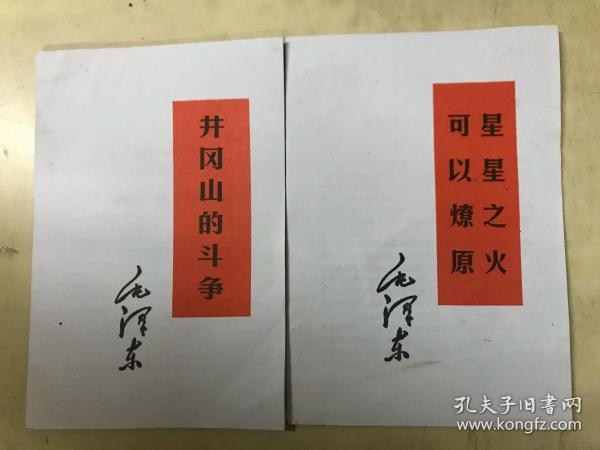 井冈山的斗争
毛泽东
星星之火
可以燎原
毛泽东
孔夫子旧书网
www.kongfz.com